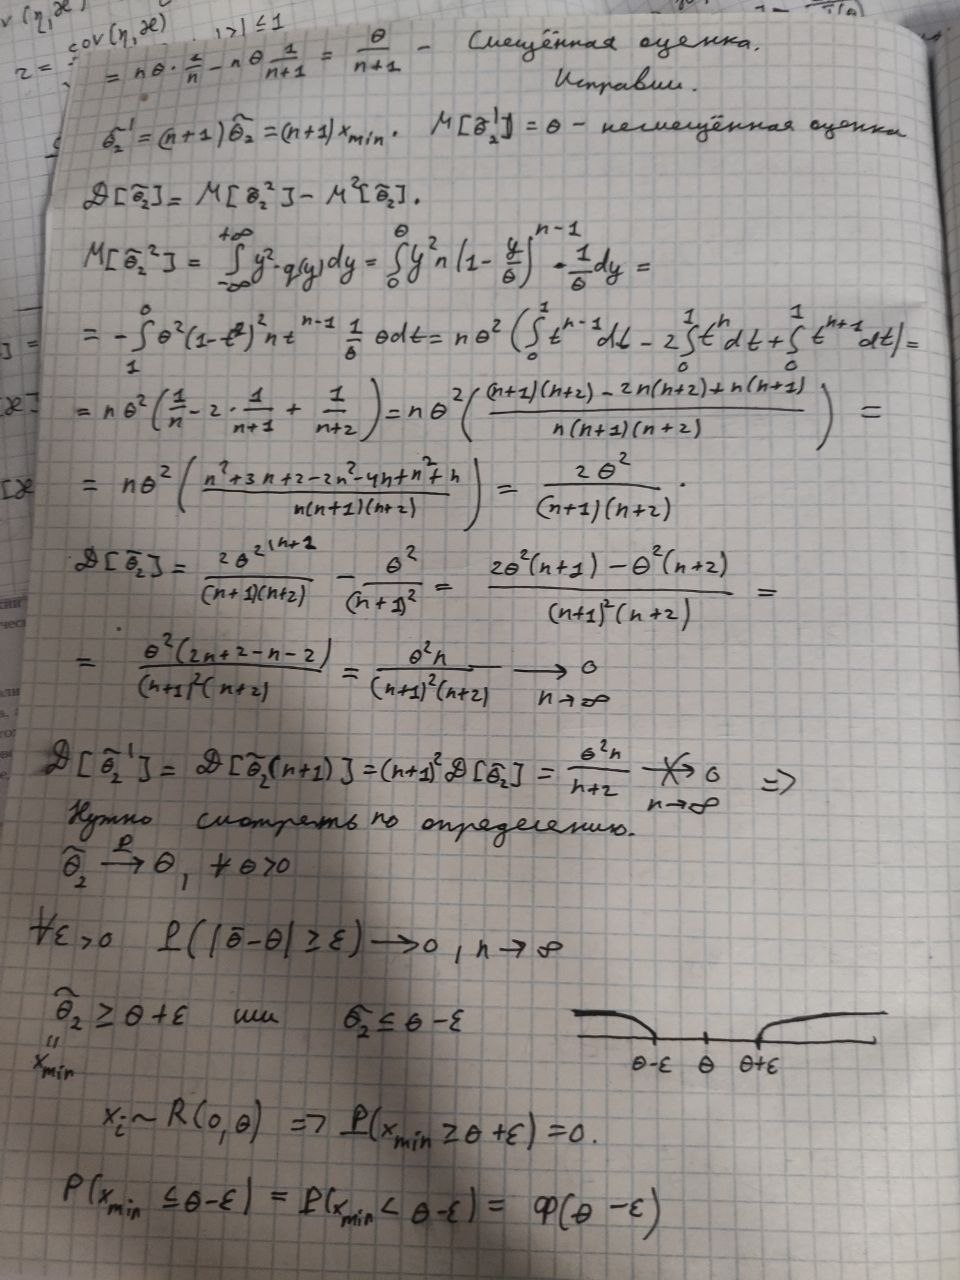 cov(η,ϰ)
= nθ · 1/n − nθ 1/(n+1) = θ/(n+1) − Смещённая оценка.
Исправим.
θ̃₂' = (n+1)θ̃₂ = (n+1)x_min. M[θ̃₂'] = θ − несмещённая оценка
D[θ̃₂] = M[θ̃₂²] − M²[θ̃₂].
M[θ̃₂²] = ∫_{-∞}^{+∞} y² · q(y) dy = ∫_0^θ y² n (1 − y/θ)^{n−1} · 1/θ dy =
= −∫_1^0 θ²(1−t)² n t^{n−1} 1/θ θ dt = nθ² (∫_0^1 t^{n−1} dt − 2∫_0^1 t^n dt + ∫_0^1 t^{n+1} dt) =
= nθ² (1/n − 2 · 1/(n+1) + 1/(n+2)) = nθ² (((n+1)(n+2) − 2n(n+2) + n(n+1))/(n(n+1)(n+2))) =
= nθ² ((n²+3n+2−2n²−4n+n²+n)/(n(n+1)(n+2))) = 2θ²/((n+1)(n+2)).
D[θ̃₂] = 2θ² ^{(n+1}/((n+1)(n+2)) − θ²/(n+1)² = (2θ²(n+1) − θ²(n+2))/((n+1)²(n+2)) =
= θ²(2n+2−n−2)/((n+1)²(n+2)) = θ²n/((n+1)²(n+2)) ⟶ 0
n→∞
D[θ̃₂'] = D[θ̃₂(n+1)] = (n+1)² D[θ̃₂] = θ²n/(n+2) ↛ 0 ⇒
n→∞
Нужно смотреть по определению.
θ̃₂ →^P θ, ∀ θ>0
∀ε>0 P(|θ̃−θ| ≥ ε) → 0, n → ∞
θ̃₂ ≥ θ+ε или θ̃₂ ≤ θ−ε
"
x_min
θ−ε θ θ+ε
x_i ~ R(0,θ) ⇒ P(x_min ≥ θ+ε) = 0.
P(x_min ≤ θ−ε) = P(x_min < θ−ε) = Φ(θ−ε)